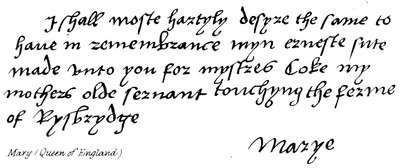 I shall moste hartyly desyre the same to
haue in remembrance myn erneste sute
made vnto you for mystres Coke my
mothers olde seruant touchyng the ferme
of Rysbrydge
Marye
Mary (Queen of England)